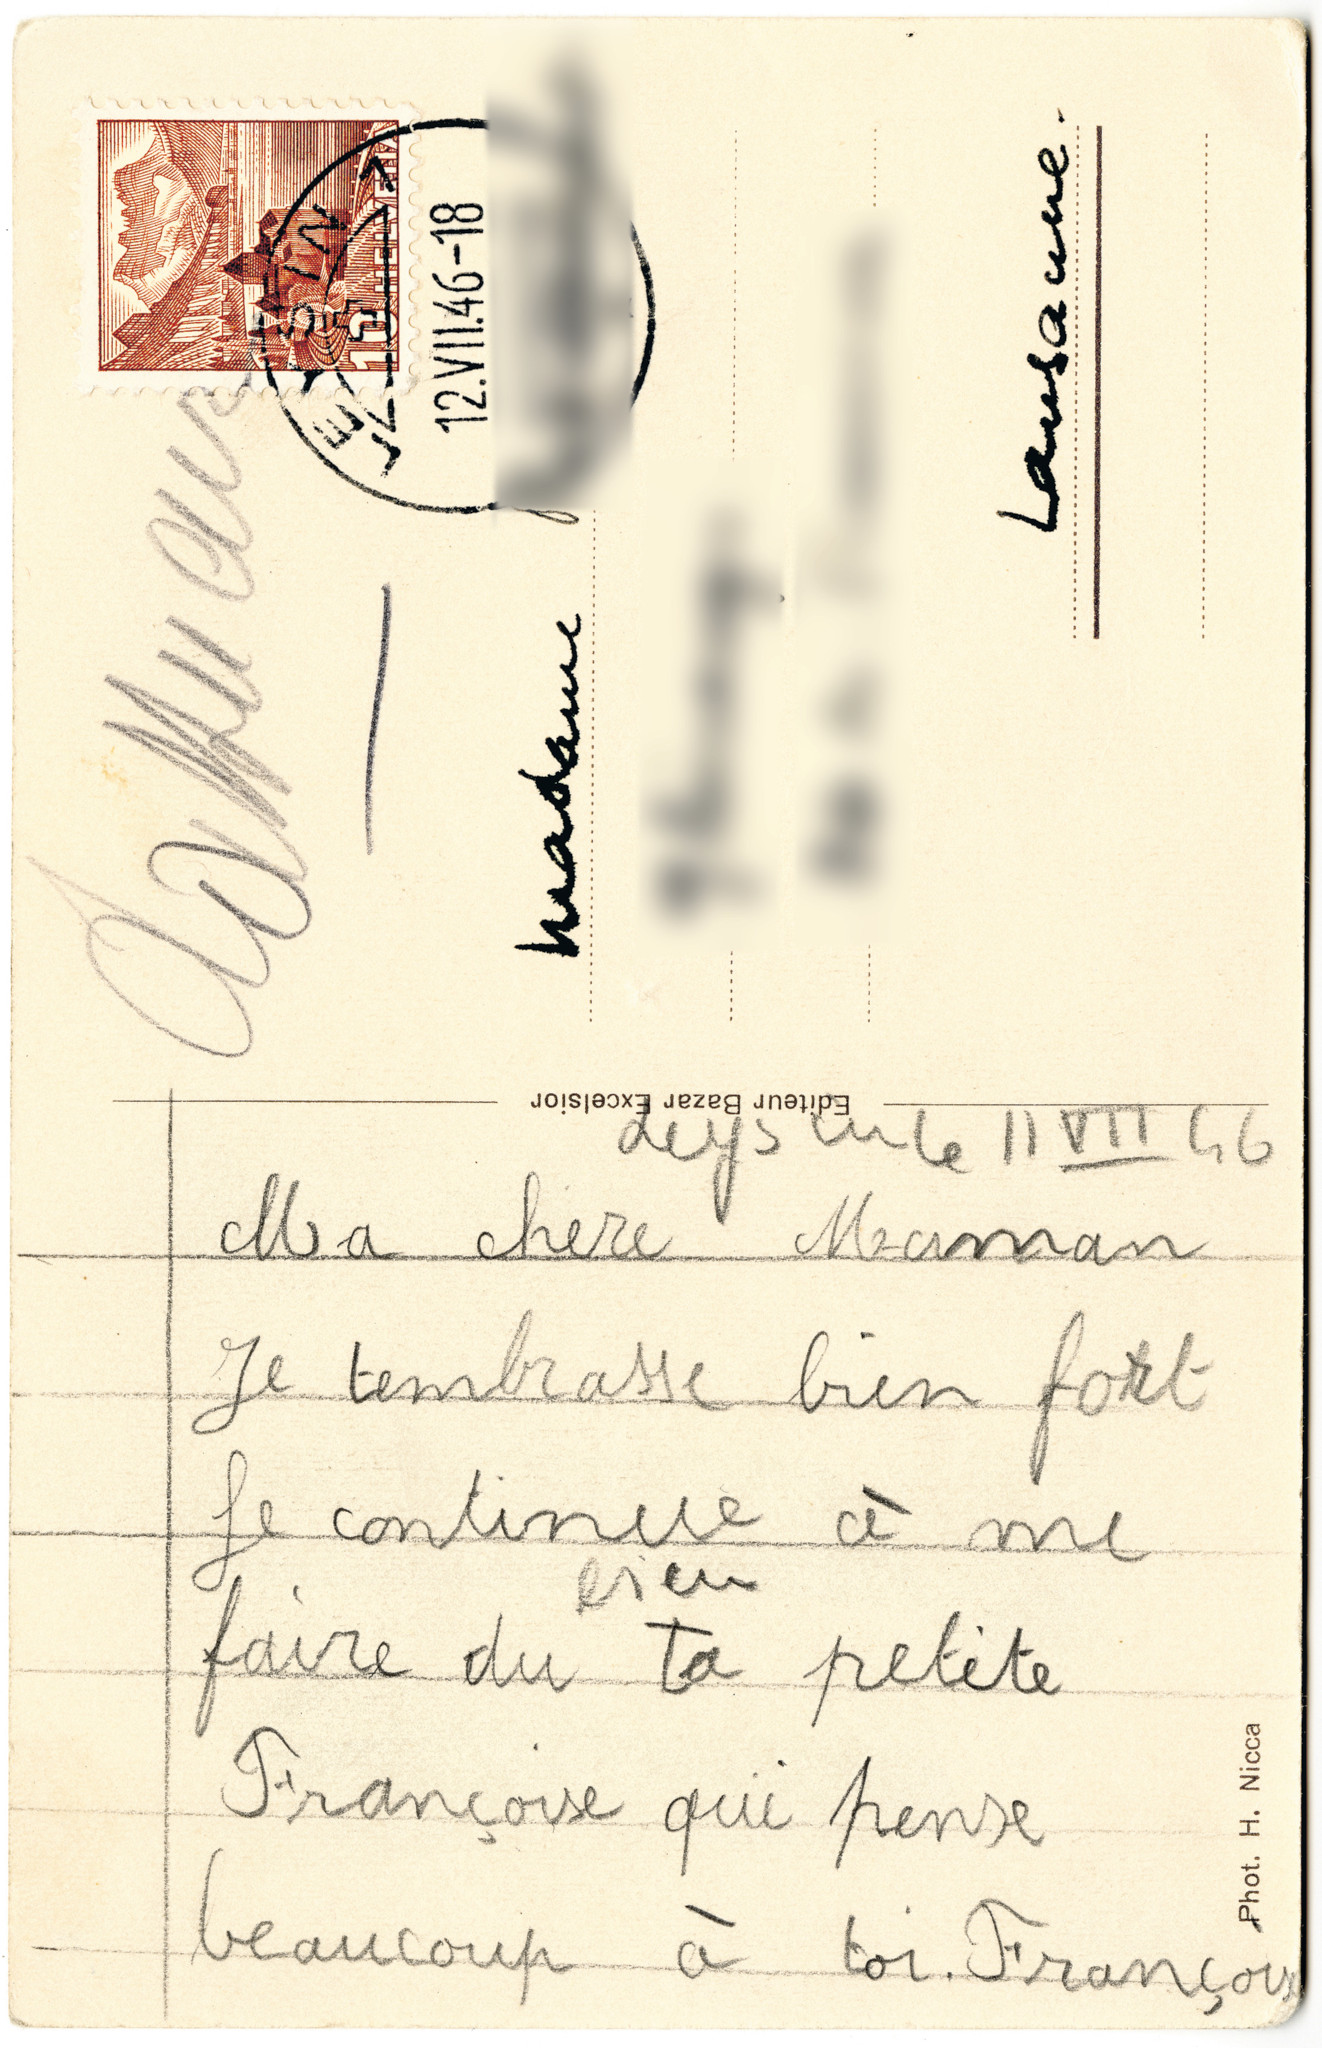 Leysin le 11 VII 46
Ma chère Maman
Je tembrasse bien fort
Je continue à me
bien
faire du Ta petite
Françoise qui pense
beaucoup à toi. Françoise
Editeur Bazar Excelsior
Phot. H. Nicca
HELVETIA
10
LEYSIN
12.VII.46-18
Madame
Lausanne.